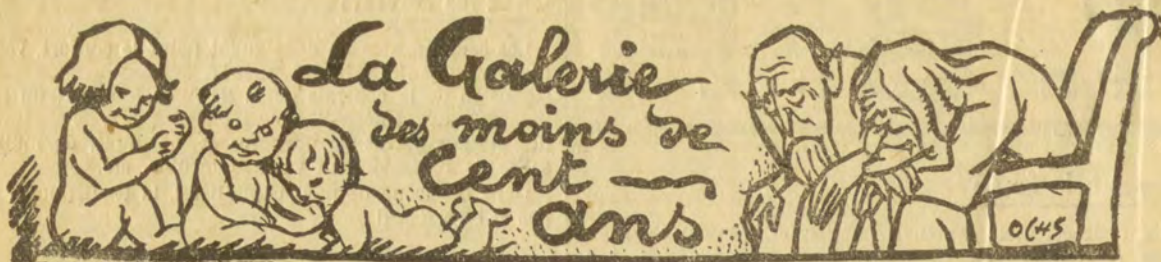 La Galerie
des moins de
Cent
ans
OCHS